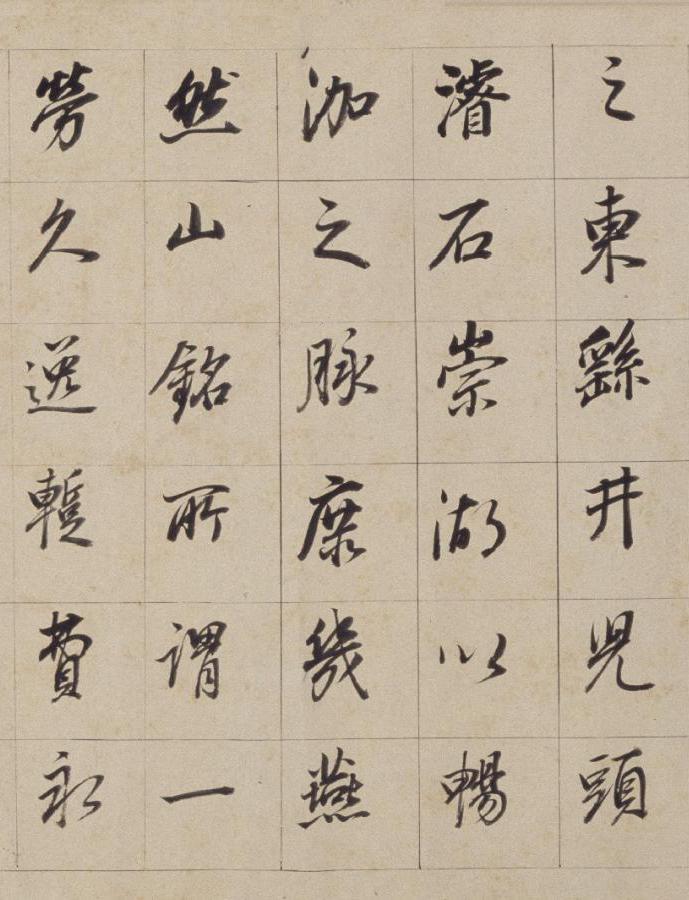 之東繇井兒頭
濬石崇湖以暢
泇之脉庶幾燕
然山銘所謂一
勞久逸暫費永